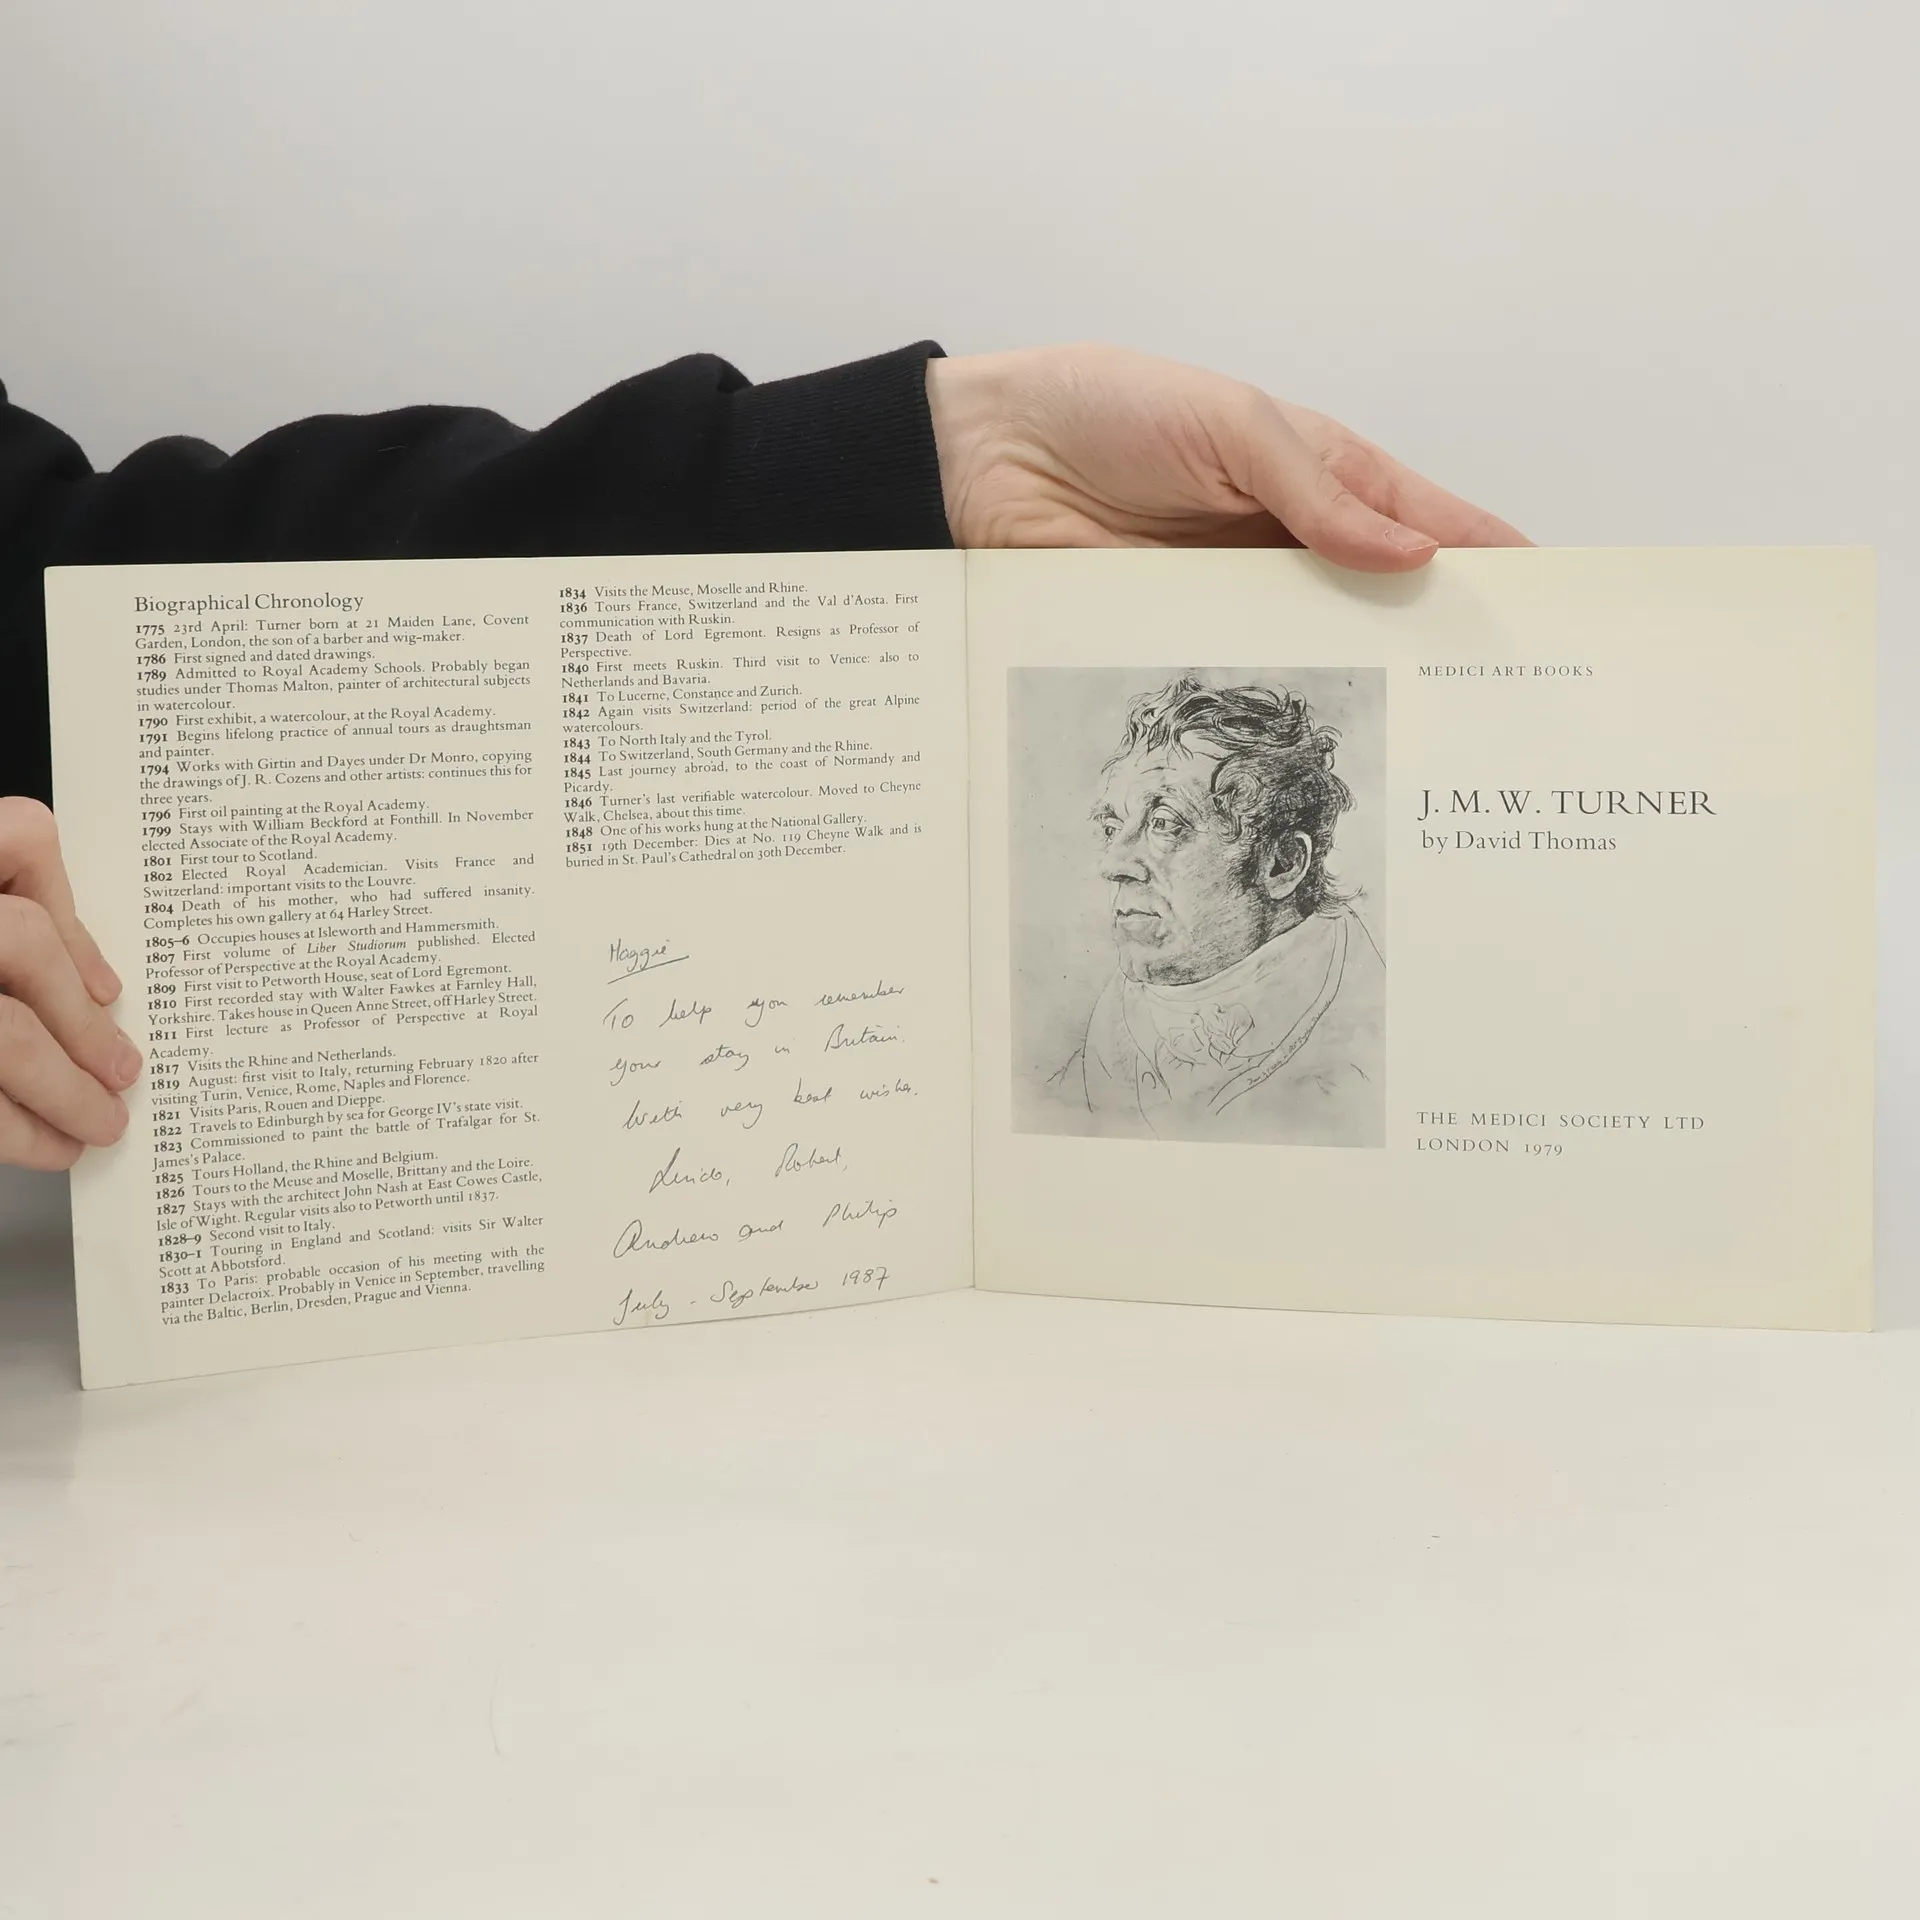 Biographical Chronology
1775 23rd April: Turner born at 21 Maiden Lane, Covent
Garden, London, the son of a barber and wig-maker.
1786 First signed and dated drawings.
1789 Admitted to Royal Academy Schools. Probably began
studies under Thomas Malton, painter of architectural subjects
in watercolour.
1790 First exhibit, a watercolour, at the Royal Academy.
1791 Begins lifelong practice of annual tours as draughtsman
and painter.
1794 Works with Girtin and Dayes under Dr Monro, copying
the drawings of J. R. Cozens and other artists: continues this for
three years.
1796 First oil painting at the Royal Academy.
1799 Stays with William Beckford at Fonthill. In November
elected Associate of the Royal Academy.
1801 First tour to Scotland.
1802 Elected Royal Academician. Visits France and
Switzerland: important visits to the Louvre.
1804 Death of his mother, who had suffered insanity.
Completes his own gallery at 64 Harley Street.
1805–6 Occupies houses at Isleworth and Hammersmith.
1807 First volume of Liber Studiorum published. Elected
Professor of Perspective at the Royal Academy.
1809 First visit to Petworth House, seat of Lord Egremont.
1810 First recorded stay with Walter Fawkes at Farnley Hall,
Yorkshire. Takes house in Queen Anne Street, off Harley Street.
1811 First lecture as Professor of Perspective at Royal
Academy.
1817 Visits the Rhine and Netherlands.
1819 August: first visit to Italy, returning February 1820 after
visiting Turin, Venice, Rome, Naples and Florence.
1821 Visits Paris, Rouen and Dieppe.
1822 Travels to Edinburgh by sea for George IV's state visit.
1823 Commissioned to paint the battle of Trafalgar for St.
James's Palace.
1825 Tours Holland, the Rhine and Belgium.
1826 Tours to the Meuse and Moselle, Brittany and the Loire.
1827 Stays with the architect John Nash at East Cowes Castle,
Isle of Wight. Regular visits also to Petworth until 1837.
1828–9 Second visit to Italy.
1830–1 Touring in England and Scotland: visits Sir Walter
Scott at Abbotsford.
1833 To Paris: probable occasion of his meeting with the
painter Delacroix. Probably in Venice in September, travelling
via the Baltic, Berlin, Dresden, Prague and Vienna.
1834 Visits the Meuse, Moselle and Rhine.
1836 Tours France, Switzerland and the Val d'Aosta. First
communication with Ruskin.
1837 Death of Lord Egremont. Resigns as Professor of
Perspective.
1840 First meets Ruskin. Third visit to Venice: also to
Netherlands and Bavaria.
1841 To Lucerne, Constance and Zurich.
1842 Again visits Switzerland: period of the great Alpine
watercolours.
1843 To North Italy and the Tyrol.
1844 To Switzerland, South Germany and the Rhine.
1845 Last journey abroad, to the coast of Normandy and
Picardy.
1846 Turner's last verifiable watercolour. Moved to Cheyne
Walk, Chelsea, about this time.
1848 One of his works hung at the National Gallery.
1851 19th December: Dies at No. 119 Cheyne Walk and is
buried in St. Paul's Cathedral on 30th December.
Maggie
To help you remember
your stay in Britain.
With very best wishes.
Linda, Robert,
Andrew and Philip
July - September 1987
MEDICI ART BOOKS
J. M. W. TURNER
by David Thomas
THE MEDICI SOCIETY LTD
LONDON 1979